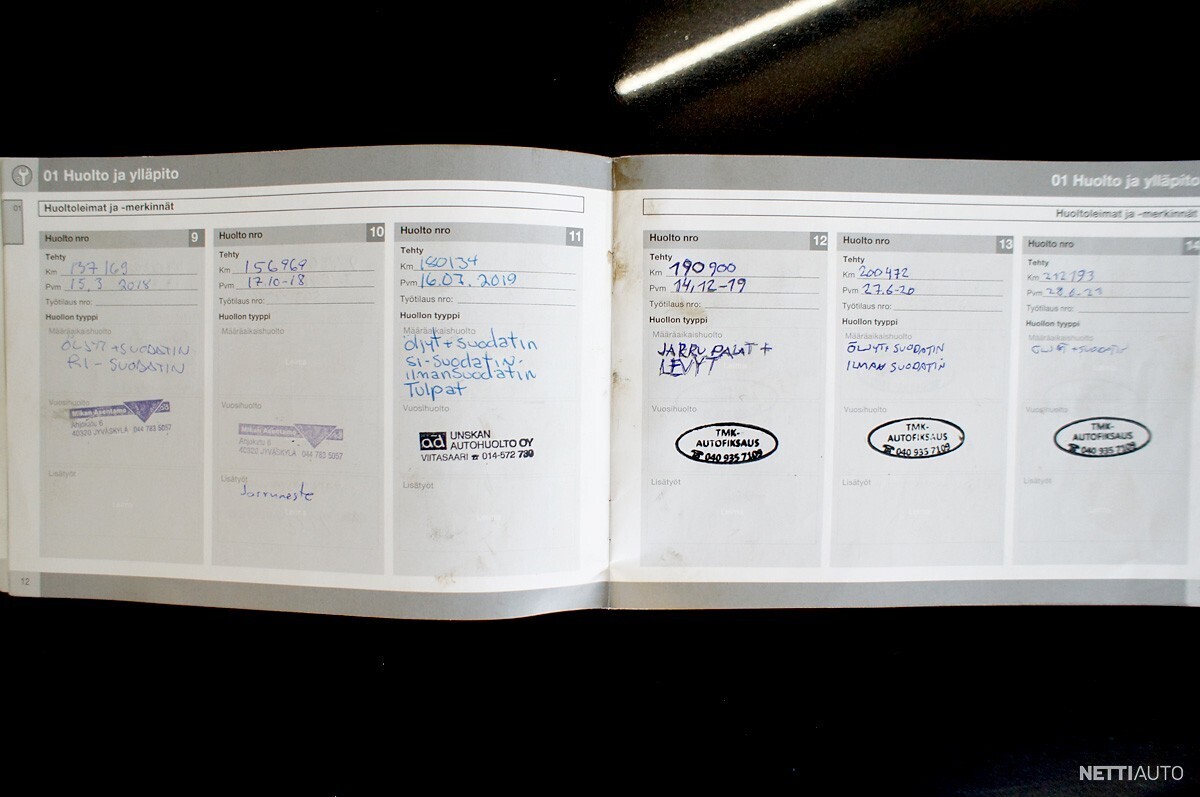 01 Huolto ja ylläpito
01
Huoltoleimat ja -merkinnät
Huolto nro 9
Tehty
Km 137169
Pvm 15.3 2018
Työtilaus nro:
Huollon tyyppi
Määräaikaishuolto
ÖLJYT + SUODATIN
RI - SUODATIN
Vuosihuolto
Ahjokatu 6
40320 JYVÄSKYLÄ 044 783 5057
Lisätyöt
12
Huolto nro 10
Tehty
Km 156969
Pvm 17.10-18
Työtilaus nro:
Huollon tyyppi
Määräaikaishuolto
Vuosihuolto
Ahjokatu 6
40320 JYVÄSKYLÄ 044 783 5057
Lisätyöt
Jarruneste
Huolto nro 11
Tehty
Km 180134
Pvm 16.07.2019
Työtilaus nro:
Huollon tyyppi
Määräaikaishuolto
öljyt + suodatin
si-suodatin.
ilmansuodatin
Tulpat
Vuosihuolto
ad UNSKAN
AUTOHUOLTO OY
VIITASAARI ☎ 014-572 789
Lisätyöt
01 Huolto ja ylläpito
Huoltoleimat ja -merkinnät
Huolto nro 12
Tehty
Km 190900
Pvm 14.12-19
Työtilaus nro:
Huollon tyyppi
Määräaikaishuolto
JARRUPALAT +
LEVYT
Vuosihuolto
TMK-
AUTOFIKSAUS
☎ 040 935 7109
Lisätyöt
Huolto nro 13
Tehty
Km 200472
Pvm 27.6-20
Työtilaus nro:
Huollon tyyppi
Määräaikaishuolto
ÖLJYT+ SUODATIN
ILMAN SUODATIN
Vuosihuolto
TMK-
AUTOFIKSAUS
☎ 040 935 7109
Lisätyöt
Huolto nro 14
Tehty
Km 212193
Pvm 28.6-21
Työtilaus nro:
Huollon tyyppi
Määräaikaishuolto
ÖLJYT + SUODATIN
Vuosihuolto
TMK-
AUTOFIKSAUS
☎ 040 935 7109
Lisätyöt
NETTIAUTO